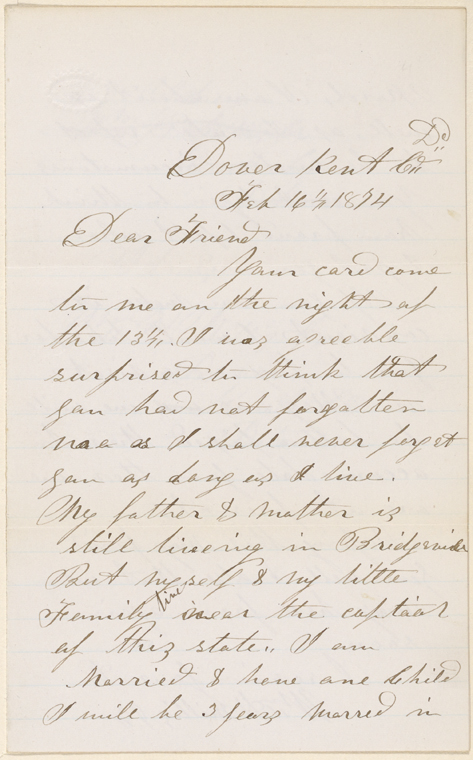 Dover Kent Co Del
Feb 16th 1874
Dear Friend
Your card come
to me on the night of
the 13th. I was agreeble
surprised to think that
you had not forgotten
as I shall never forget
you as long as I live.
My father & mother is
still liveing in Bridgeville
But myself & my little
Family live near the capital
of this state., I am
Married & have one Child
I will be 3 years Marred in